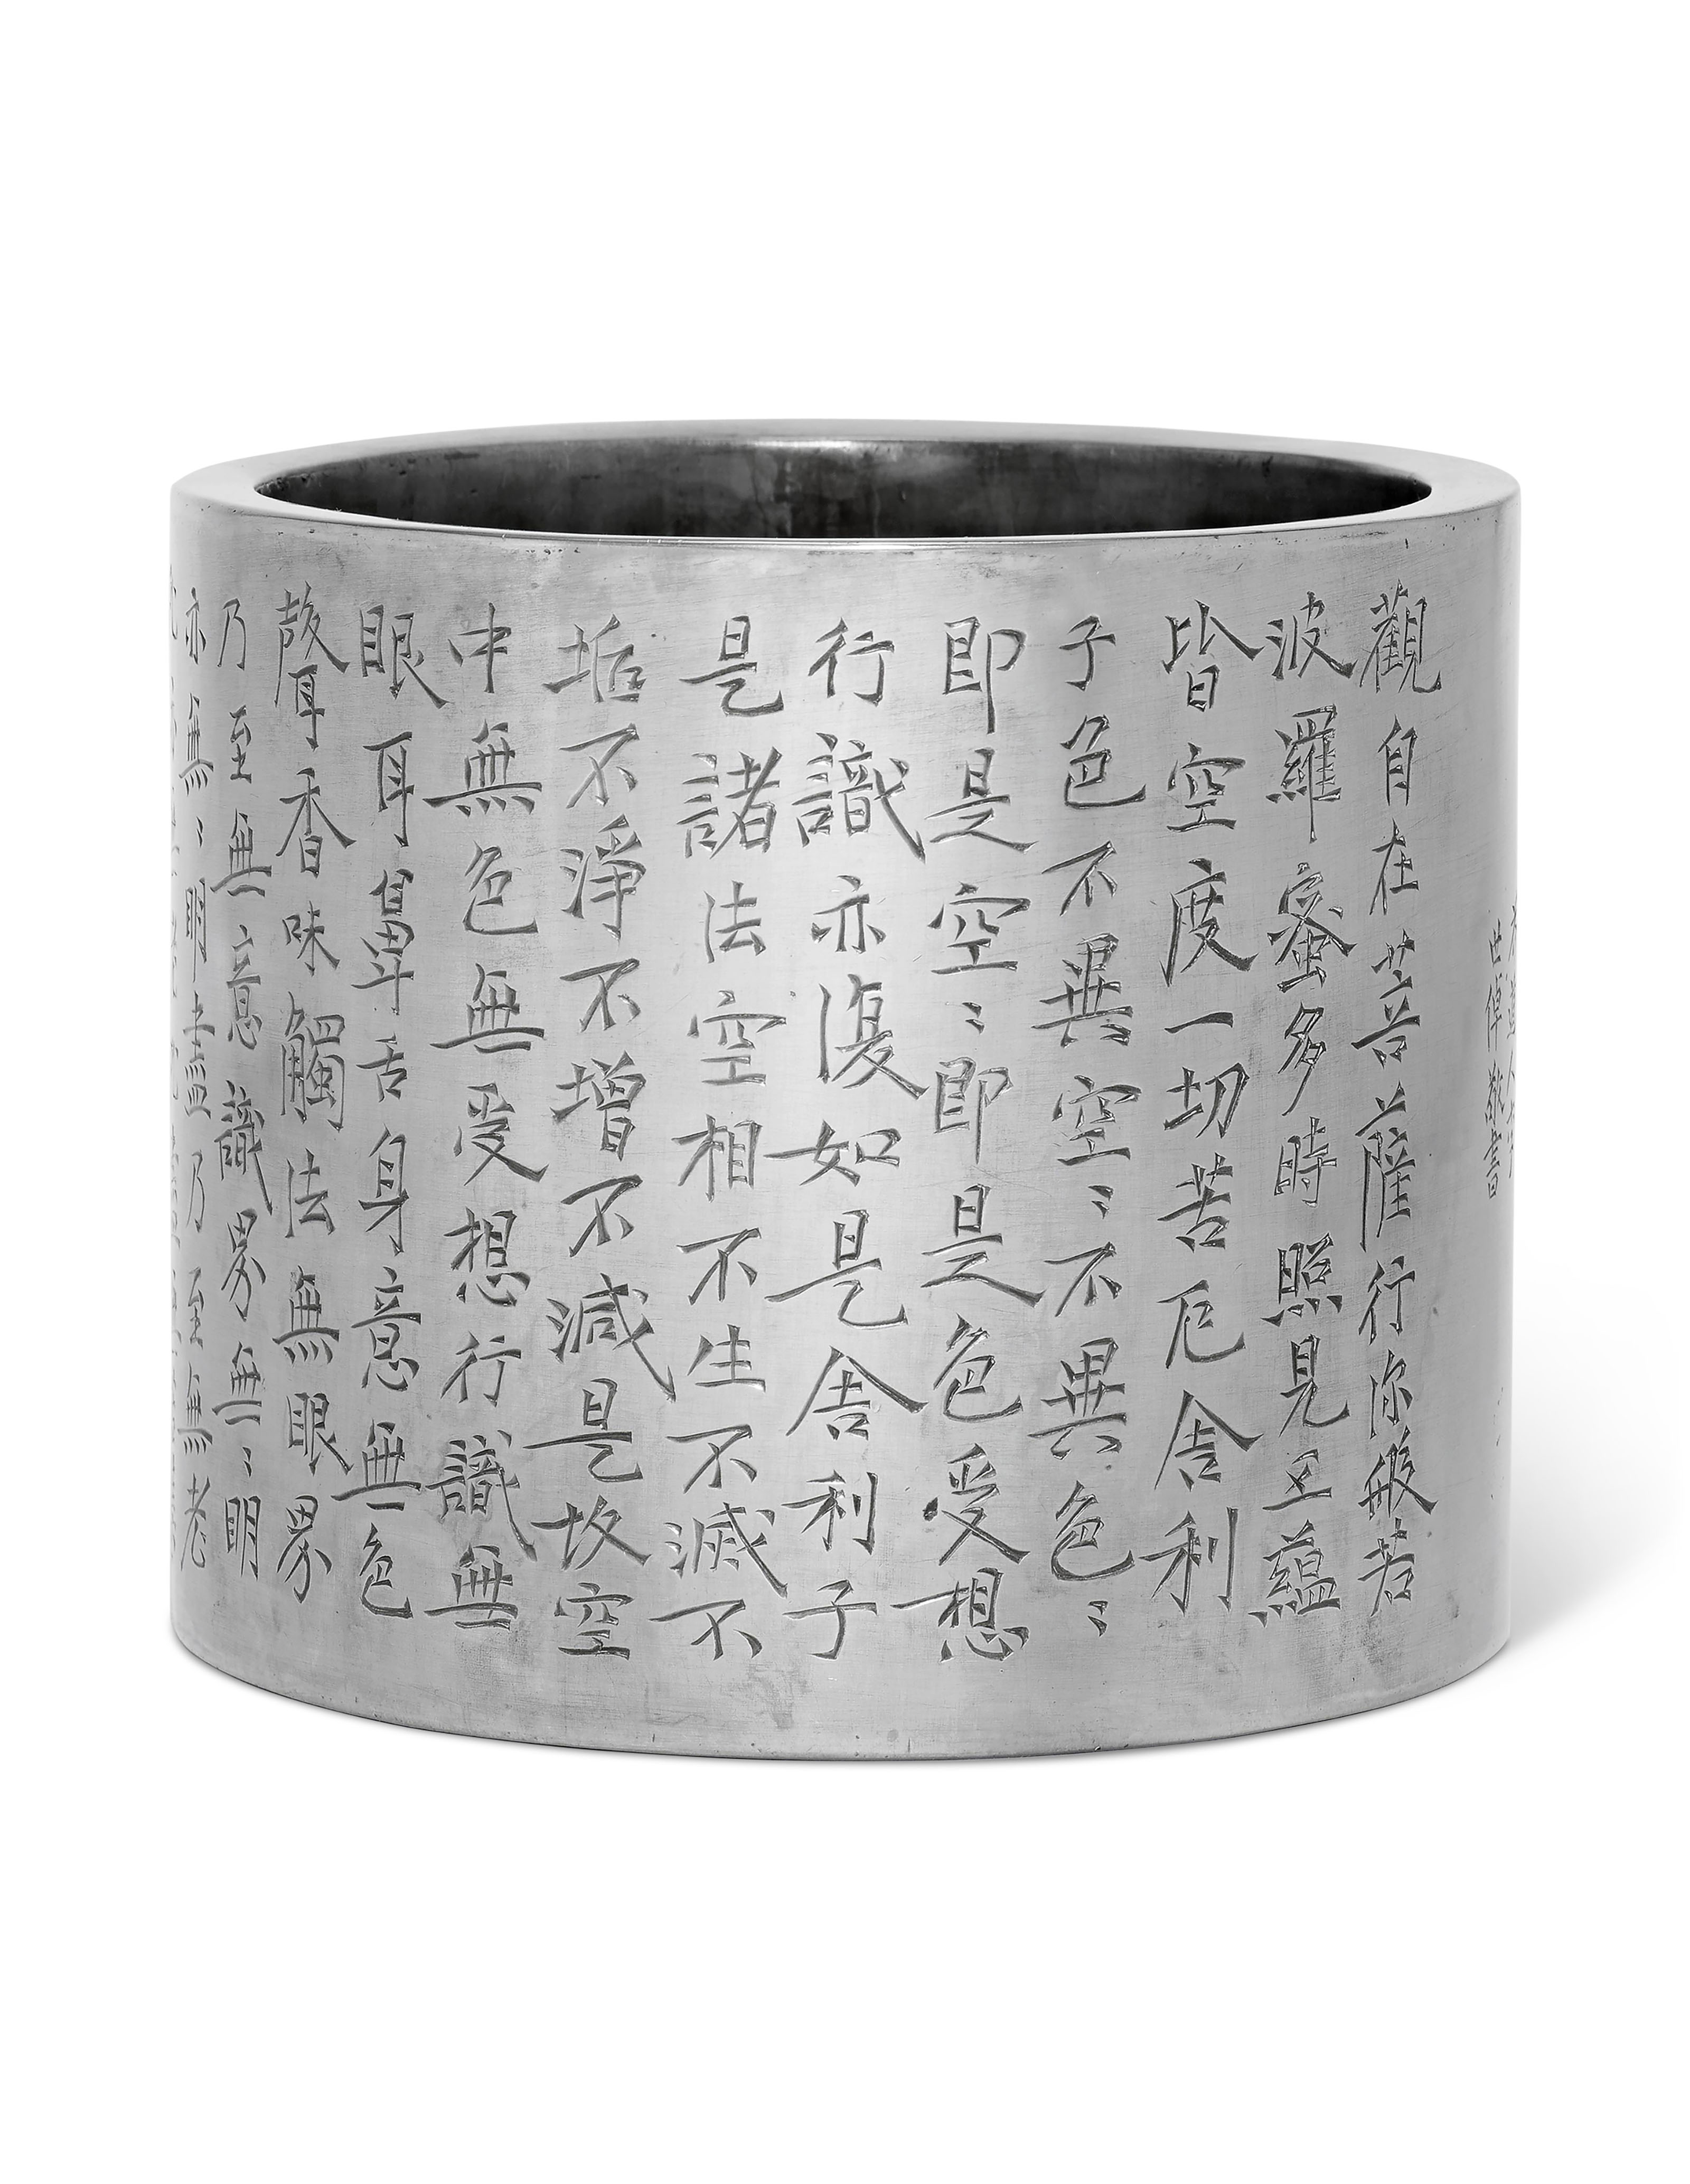 觀自在菩薩行深般若
波羅蜜多時照見五蘊
皆空度一切苦厄舍利
子色不異空〻不異色〻
即是空〻即是色受想
行識亦復如是舍利子
是諸法空相不生不滅不
垢不淨不增不減是故空
中無色無受想行識無
眼耳鼻舌身意無色
聲香味觸法無眼界
乃至無意識界無〻明
亦無〻明盡乃至無老